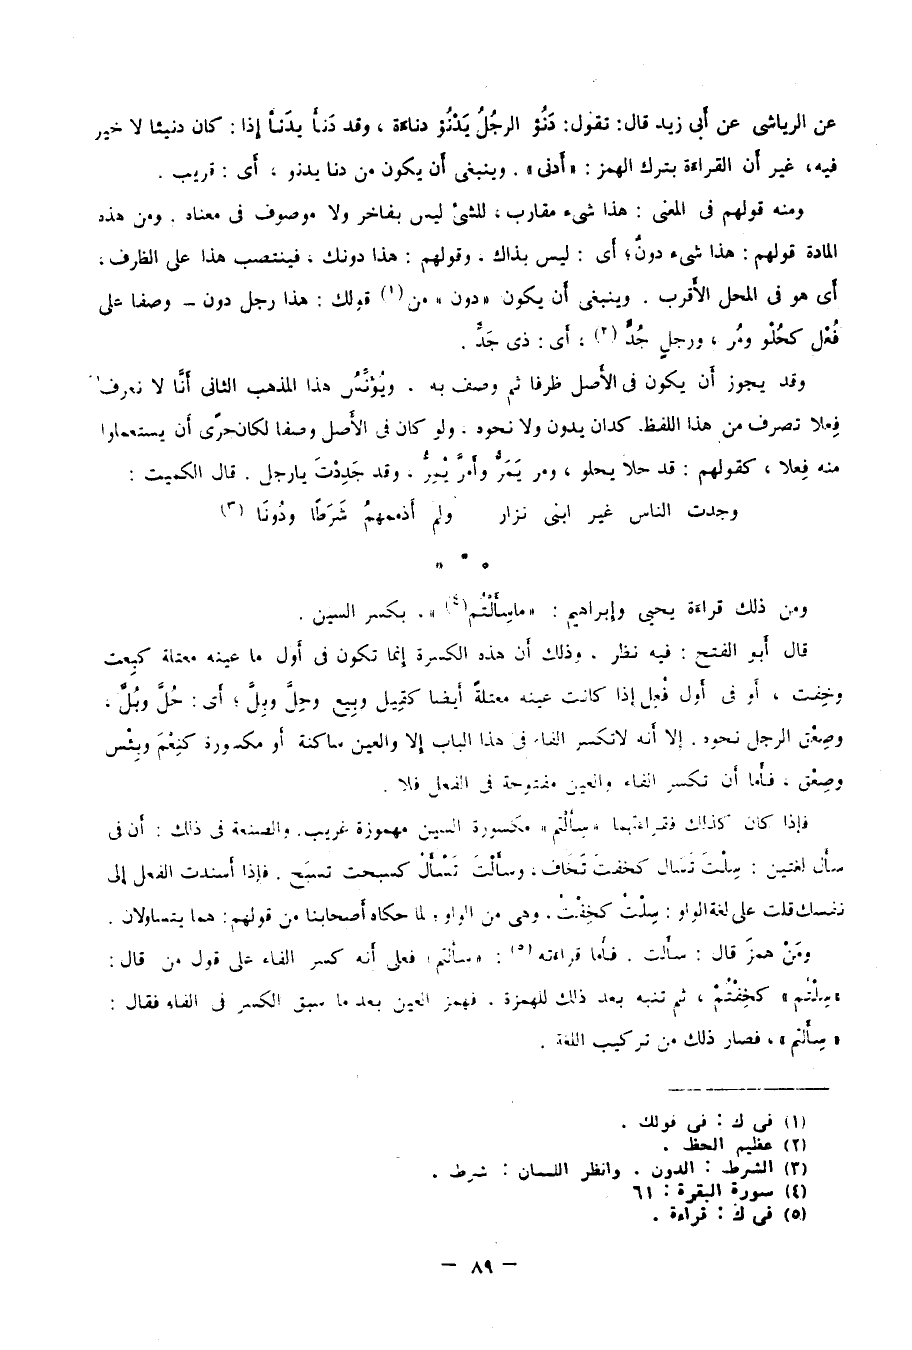 عن الرياشى عن أَبى زيد قال: تقول: دَنُؤ الرجُلُ يَدْنُؤ دناءة ، وقد دَنأَ يدْنأُ إذا : كان دنيئا لا خير
فيه، غير أَن القراءة بترك الهمز : «أَدنى» . وينبغى أَن يكون من دنا يدنو ، أَى : قريب .
ومنه قولهم فى المعنى : هذا شىء مقارب ، للشىْ ليس بفاخر ولا موصوف فى معناه . ومن هذه
المادة قولهم : هذا شىء دونٌ؛ أَى : ليس بذاك ، وقولهم : هذا دونك ، فينتصب هذا على الظرف ،
أَى هو فى المحل الأَقرب . وينبغى أَن يكون «دون» من (١) قولك : هذا رجل دون – وصفا على
فُعْل كحُلْو ومُر ، ورجلٍ جُدٍّ (٢) ، أَى : ذى جَدٍّ .
وقد يجوز أَن يكون فى الأَصل ظرفا ثم وصف به . ويُؤنِّس هذا المذهب الثانى أَنَّا لا نعرف
فِعلا تصرف من هذا اللفظ. كدان يدون ولا نحوه . ولو كان فى الأَصل وصفا لكان حرًى أَن يستعملوا
منه فِعلا ، كقولهم : قد حلا يحلو ، ومر يَمَرُّ وأَمرَّ يُمِرُّ ، وقد جَدِدْتَ يارجل . قال الكميت :
وجدت الناس غير ابنى نزار ولم أَذممهمُ شَرَطًا ودُونَا (٣)
* * *
ومن ذلك قراءة يحيى وإبراهيم : «ماسِأَلْتُم (٤) » . بكسر السين .
قال أَبو الفتح : فيه نظر . وذلك أَن هذه الكسرة إنما تكون فى أَول ما عينه معتلة كبِعت
وخِفت ، أَو فى أَول فُعِل إذا كانت عينه معتلةً أَيضا كقِيل وبِيع وحِلَّ وبِلَّ ؛ أَى : حُلَّ وبُلَّ ،
وصِعْق الرجل نحوه . إلا أَنه لاتكسر الفاء فى هذا الباب إلا والعين ساكنة أَو مكسورة كنِعْمَ وبِئْس
وصِعْق ، فأَما أَن تكسر الفاء والعين مفتوحة فى الفعل فلا .
فإذا كان كذلك فقراءتهما «سِأَلتم» مكسورة السين مهموزة غريب. والصنعة فى ذلك : أَن فى
سأَل لغتين : سِلْتَ تَسَال كخفتَ تَخَاف ، وسأَلْتَ تَسْأَلْ كسبحت تسبَح . فإذا أسندت الفعل إلى
نفسك قلت على لغة الواو : سِلْتُ كخِفْتُ . وهى من الواو ؛ لما حكاه أَصحابنا من قولهم : هما يتساولان .
ومَنْ همزَ قال : سأَلت . فأَما قراءته (٥) : «سِأَلتم» فعلى أَنه كسر الفاء على قول من قال :
«سِلْتُم» كخِفْتُمْ ، ثم تنبه بعد ذلك للهمزة . فهمز العين بعد ما سبق الكسر فى الفاء فقال :
«سِأَلتم» ، فصار ذلك من تركيب اللغة .
(١) فى ك : فى قولك .
(٢) عظيم الحظ .
(٣) الشرط : الدون . وانظر اللسان : شرط .
(٤) سورة البقرة : ٦١
(٥) فى ك : قراءة .
– ٨٩ –